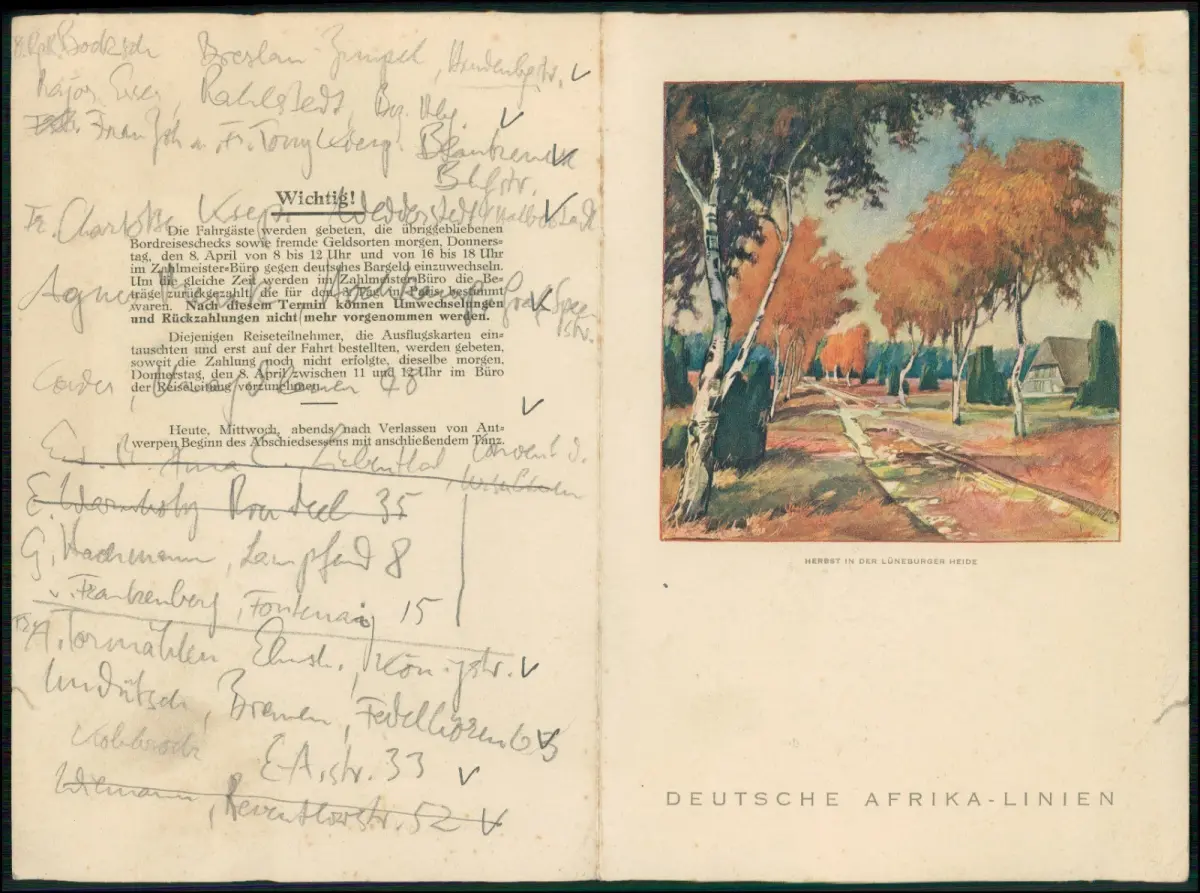 Breslau-Zimpel, Hindenbgstr.
Major Rahlstedt, Bez. Hbg
Frau Joh u. Fr. Tony
Bhfstr.
Wichtig!
Fr. Charlotte Wedderstedt / Halberstadt
Die Fahrgäste werden gebeten, die übriggebliebenen
Bordreiseschecks sowie fremde Geldsorten morgen, Donners=
tag, den 8. April von 8 bis 12 Uhr und von 16 bis 18 Uhr
im Zahlmeister=Büro gegen deutsches Bargeld einzuwechseln.
Um die gleiche Zeit werden im Zahlmeister=Büro die Be=
träge zurückgezahlt, die für den Tag in Paris bestimmt
waren. Nach diesem Termin können Umwechselungen
und Rückzahlungen nicht mehr vorgenommen werden.
Agnes Graf Spee
str.
Diejenigen Reiseteilnehmer, die Ausflugskarten ein=
tauschten und erst auf der Fahrt bestellten, werden gebeten,
soweit die Zahlung noch nicht erfolgte, dieselbe morgen,
Donnerstag, den 8. April zwischen 11 und 12 Uhr im Büro
der Reiseleitung vorzunehmen.
Cordes
Heute, Mittwoch, abends nach Verlassen von Ant=
werpen Beginn des Abschiedsessens mit anschließendem Tanz.
Anna Liebenthal, Convent d.
E Warnholz Rondeel 35
G. Wachsmann, Lampfad 8
v. Frankenberg, Fontenay 15
Fr. A. Tormählen Elmsh., Königstr.
Bremen, Fedelhören 63
E-A.str. 33
Reventlowstr. 52
HERBST IN DER LÜNEBURGER HEIDE
DEUTSCHE AFRIKA-LINIEN